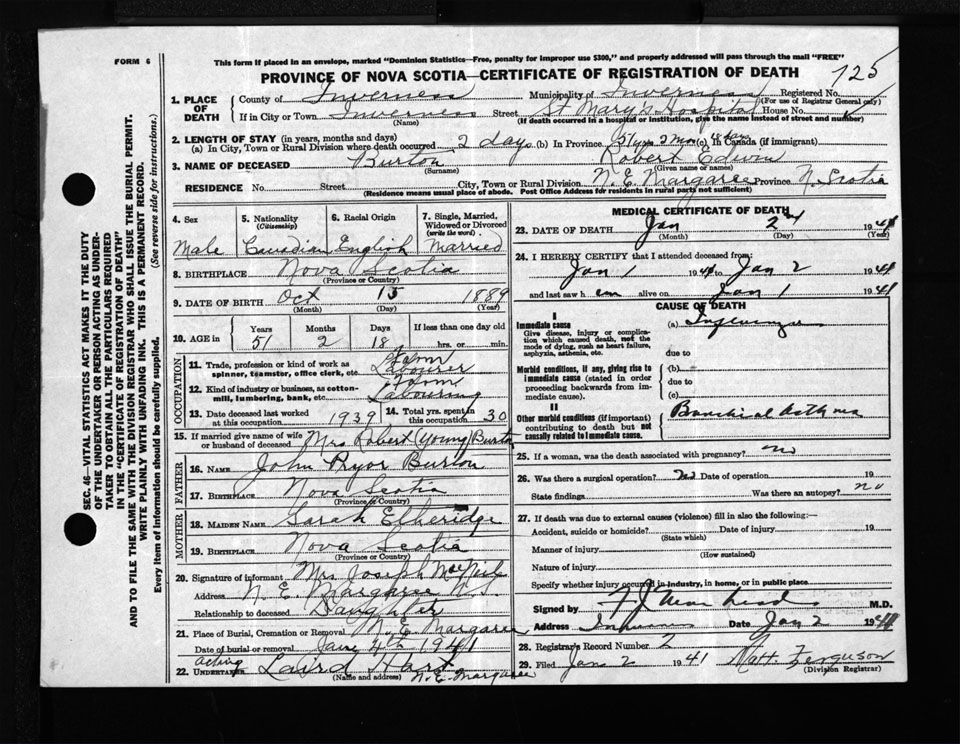 FORM 6
This form if placed in an envelope, marked "Dominion Statistics—Free, penalty for improper use $300," and properly addressed will pass through the mail "FREE"
PROVINCE OF NOVA SCOTIA—CERTIFICATE OF REGISTRATION OF DEATH
125
1. PLACE OF DEATH County of Inverness Municipality of Inverness Registered No.
(For use of Registrar General only)
If in City or Town Inverness Street St Mary's Hospital House No.
(Name) (If death occurred in a hospital or institution, give the name instead of street and number)
2. LENGTH OF STAY (in years, months and days)
(a) In City, Town or Rural Division where death occurred 2 days (b) In Province 51 yrs 2 mos 18 days (c) In Canada (if immigrant)
3. NAME OF DECEASED Burton Robert Edwin
(Surname) (Given name or names)
RESIDENCE No. Street City, Town or Rural Division N. E. Margaree Province N. Scotia
(Residence means usual place of abode. Post Office Address for residents in rural parts not sufficient)
4. Sex 5. Nationality (Citizenship) 6. Racial Origin 7. Single, Married, Widowed or Divorced (write the word)
Male Canadian English Married
8. BIRTHPLACE Nova Scotia
(Province or Country)
9. DATE OF BIRTH Oct 15 1889
(Month) (Day) (Year)
10. AGE in Years Months Days If less than one day old
51 2 18 hrs. or min.
OCCUPATION
11. Trade, profession or kind of work as spinner, teamster, office clerk, etc. Farm Labourer
12. Kind of industry or business, as cotton-mill, lumbering, bank, etc. Farm Labouring
13. Date deceased last worked at this occupation 1939 14. Total yrs. spent in this occupation 30
15. If married give name of wife or husband of deceased Mrs Robert (Young) Burton
FATHER
16. NAME John Pryor Burton
17. BIRTHPLACE Nova Scotia
(Province or Country)
MOTHER
18. MAIDEN NAME Sarah Etheridge
19. BIRTHPLACE Nova Scotia
(Province or Country)
20. Signature of informant Mrs. Joseph MacNeil
Address N. E. Margaree N. S.
Relationship to deceased Daughter
21. Place of Burial, Cremation or Removal N. E. Margaree
Date of burial or removal Jan 4th 1941
22. acting UNDERTAKER Laird Hart
(Name and address) N. E. Margaree
MEDICAL CERTIFICATE OF DEATH
23. DATE OF DEATH Jan 2nd 1941
(Month) (Day) (Year)
24. I HEREBY CERTIFY that I attended deceased from:
Jan 1 1941 to Jan 2 1941
and last saw h em alive on Jan 1 1941
CAUSE OF DEATH
I
Immediate cause (a) Influenza
Give disease, injury or complication which caused death, not the mode of dying, such as heart failure, asphyxia, asthemia, etc.
due to
Morbid conditions, if any, giving rise to immediate cause (stated in order proceeding backwards from immediate cause).
(b)
due to
(c)
II
Other morbid conditions (if important) contributing to death but not causally related to immediate cause. Bronchial asthma
25. If a woman, was the death associated with pregnancy? no
26. Was there a surgical operation? no Date of operation 19
State findings Was there an autopsy? no
27. If death was due to external causes (violence) fill in also the following:—
Accident, suicide or homicide? Date of injury 19
(State which)
Manner of injury
(How sustained)
Nature of injury
Specify whether injury occurred in industry, in home, or in public place
Signed by M.D.
Address Inverness Date Jan 2 1941
28. Registrar's Record Number 2
29. Filed Jan 2 1941 Matt. Ferguson
(Division Registrar)
SEC. 46—VITAL STATISTICS ACT MAKES IT THE DUTY
OF THE UNDERTAKER OR PERSON ACTING AS UNDERTAKER TO OBTAIN ALL THE PARTICULARS REQUIRED
IN THE "CERTIFICATE OF REGISTRATION OF DEATH"
AND TO FILE THE SAME WITH THE DIVISION REGISTRAR WHO SHALL ISSUE THE BURIAL PERMIT.
WRITE PLAINLY WITH UNFADING INK. THIS IS A PERMANENT RECORD.
Every item of information should be carefully supplied. (See reverse side for instructions.)